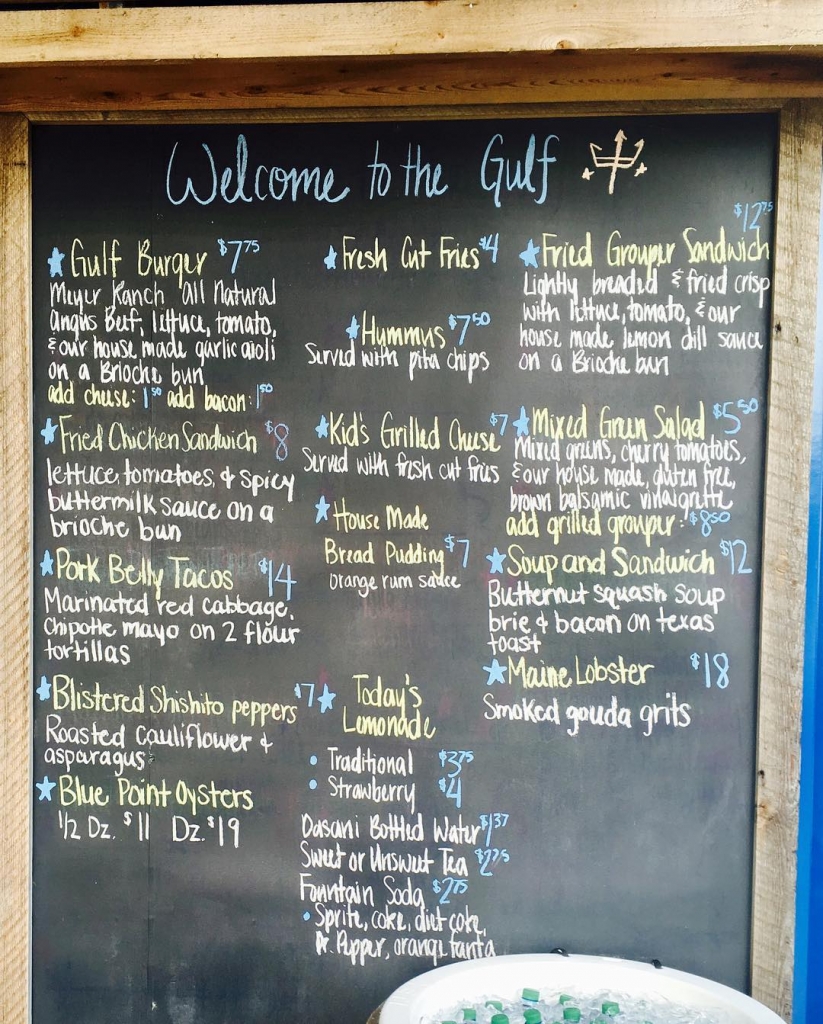 Welcome to the Gulf
★ Gulf Burger $7.75
Meyer Ranch all Natural
angus Beef, lettuce, tomato,
& our house made garlic aioli
on a Brioche bun
add cheese: 1.50 add bacon: 1.50
★ Fried Chicken Sandwich $8
lettuce, tomatoes, & spicy
buttermilk sauce on a
brioche bun
★ Pork Belly Tacos $14
Marinated red cabbage,
chipotle mayo on 2 flour
tortillas
★ Blistered Shishito peppers $7
Roasted Cauliflower &
asparagus
★ Blue Point Oysters
1/2 Dz. $11 Dz. $19
★ Fresh Cut Fries $4
★ Hummus $7.50
Served with pita chips
★ Kid's Grilled Cheese $7
Served with fresh cut fries
★ House Made
Bread Pudding $7
orange rum sauce
★ Today's
Lemonade
• Traditional $3.75
• Strawberry $4
Dasani Bottled Water $1.37
Sweet or Unsweet Tea $2.75
Fountain Soda $2.75
• Sprite, coke, diet coke,
Dr. Pepper, orange fanta
$12.75
★ Fried Grouper Sandwich
Lightly breaded & fried crisp
with lettuce, tomato, & our
house made lemon dill sauce
on a Brioche bun
★ Mixed Green Salad $5.50
Mixed greens, cherry tomatoes,
& our house made, gluten free,
brown balsamic vinaigrette
add grilled grouper: $8.50
★ Soup and Sandwich $12
Butternut squash soup
brie & bacon on texas
toast
★ Maine Lobster $18
Smoked gouda grits